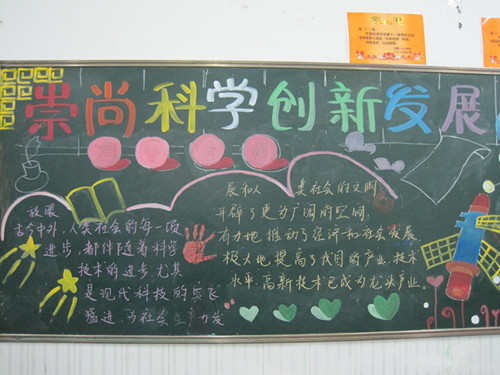 崇尚科学创新发展
放眼
古今中外,人类社会的每一项
进步,都伴随着科学
技术的进步尤其
是现代科技的突飞
猛进 为社会生产力发
展和人 类社会的文明
开辟了更为广阔的空间,
有力地推动了经济和社会发展
极大地提高了我国的产业技术
水平,高新技术已成为龙头产业.